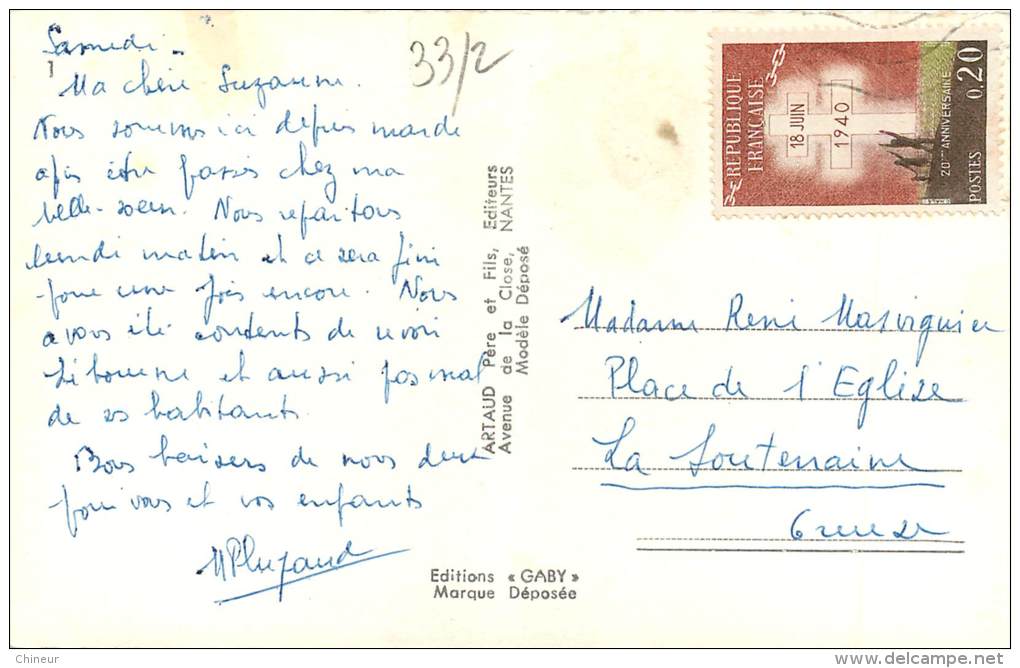 Samedi -
Ma chère Suzanne.
Nous sommes ici depuis mardi
après être passés chez ma
belle-soeur. Nous repartons
lundi matin et ce sera fini
pour une fois encore. Nous
avons été contents de revoir
Libourne et aussi pas mal
de ses habitants.
Bons baisers de nous deux
pour vous et vos enfants
33/2
ARTAUD Père et Fils, Editeurs
Avenue de la Close, NANTES
Modèle Déposé
Editions « GABY »
Marque Déposée
REPUBLIQUE
FRANÇAISE
18 JUIN
1940
20ème ANNIVERSAIRE
POSTES
0,20
Madame René Masvignier
Place de l'Eglise
La Souterraine
Creuse
Chineur
delcampe.net